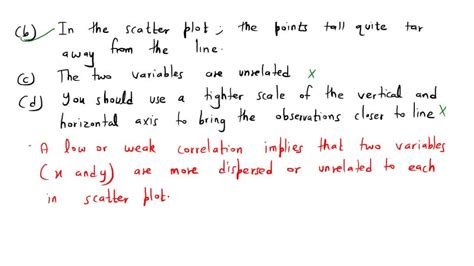 (b) In the scatter plot, the points tall quite tar
away from the line.
(c) The two variables are unrelated x
(d) You should use a tighter scale of the vertical and
horizontal axis to bring the observations closer to line x
A low or weak correlation implies that two variables
(x and y) are more dispersed or unrelated to each
in scatter plot.